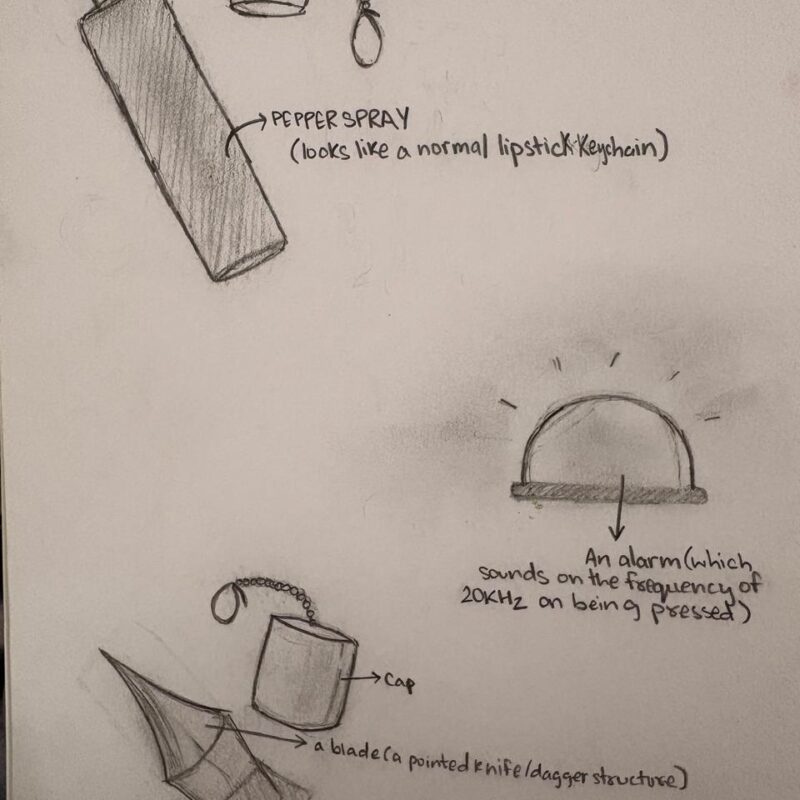 PEPPER SPRAY
(looks like a normal lipstick keychain)
An alarm (which
sounds on the frequency of
20KHz on being pressed)
Cap
a blade (a pointed knife/dagger structure)